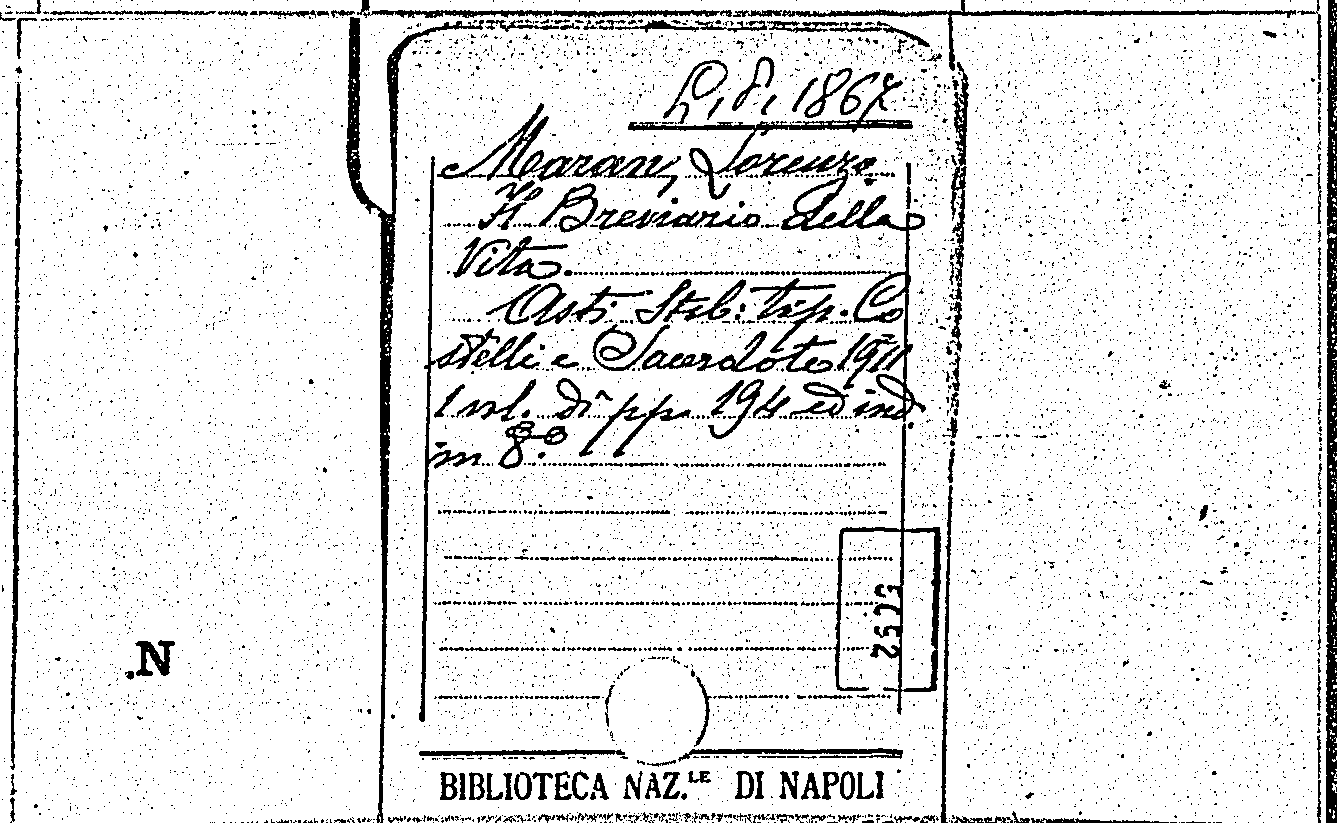 L. d. 1867
Maran, Lorenzo
Il Breviario della
Vita.
Asti. Stab: tip. Co
stelli e Sacerdote 1911
1 vol. di pp. 194 ed ind.
in 8.º
2573
.N
BIBLIOTECA NAZ.LE DI NAPOLI